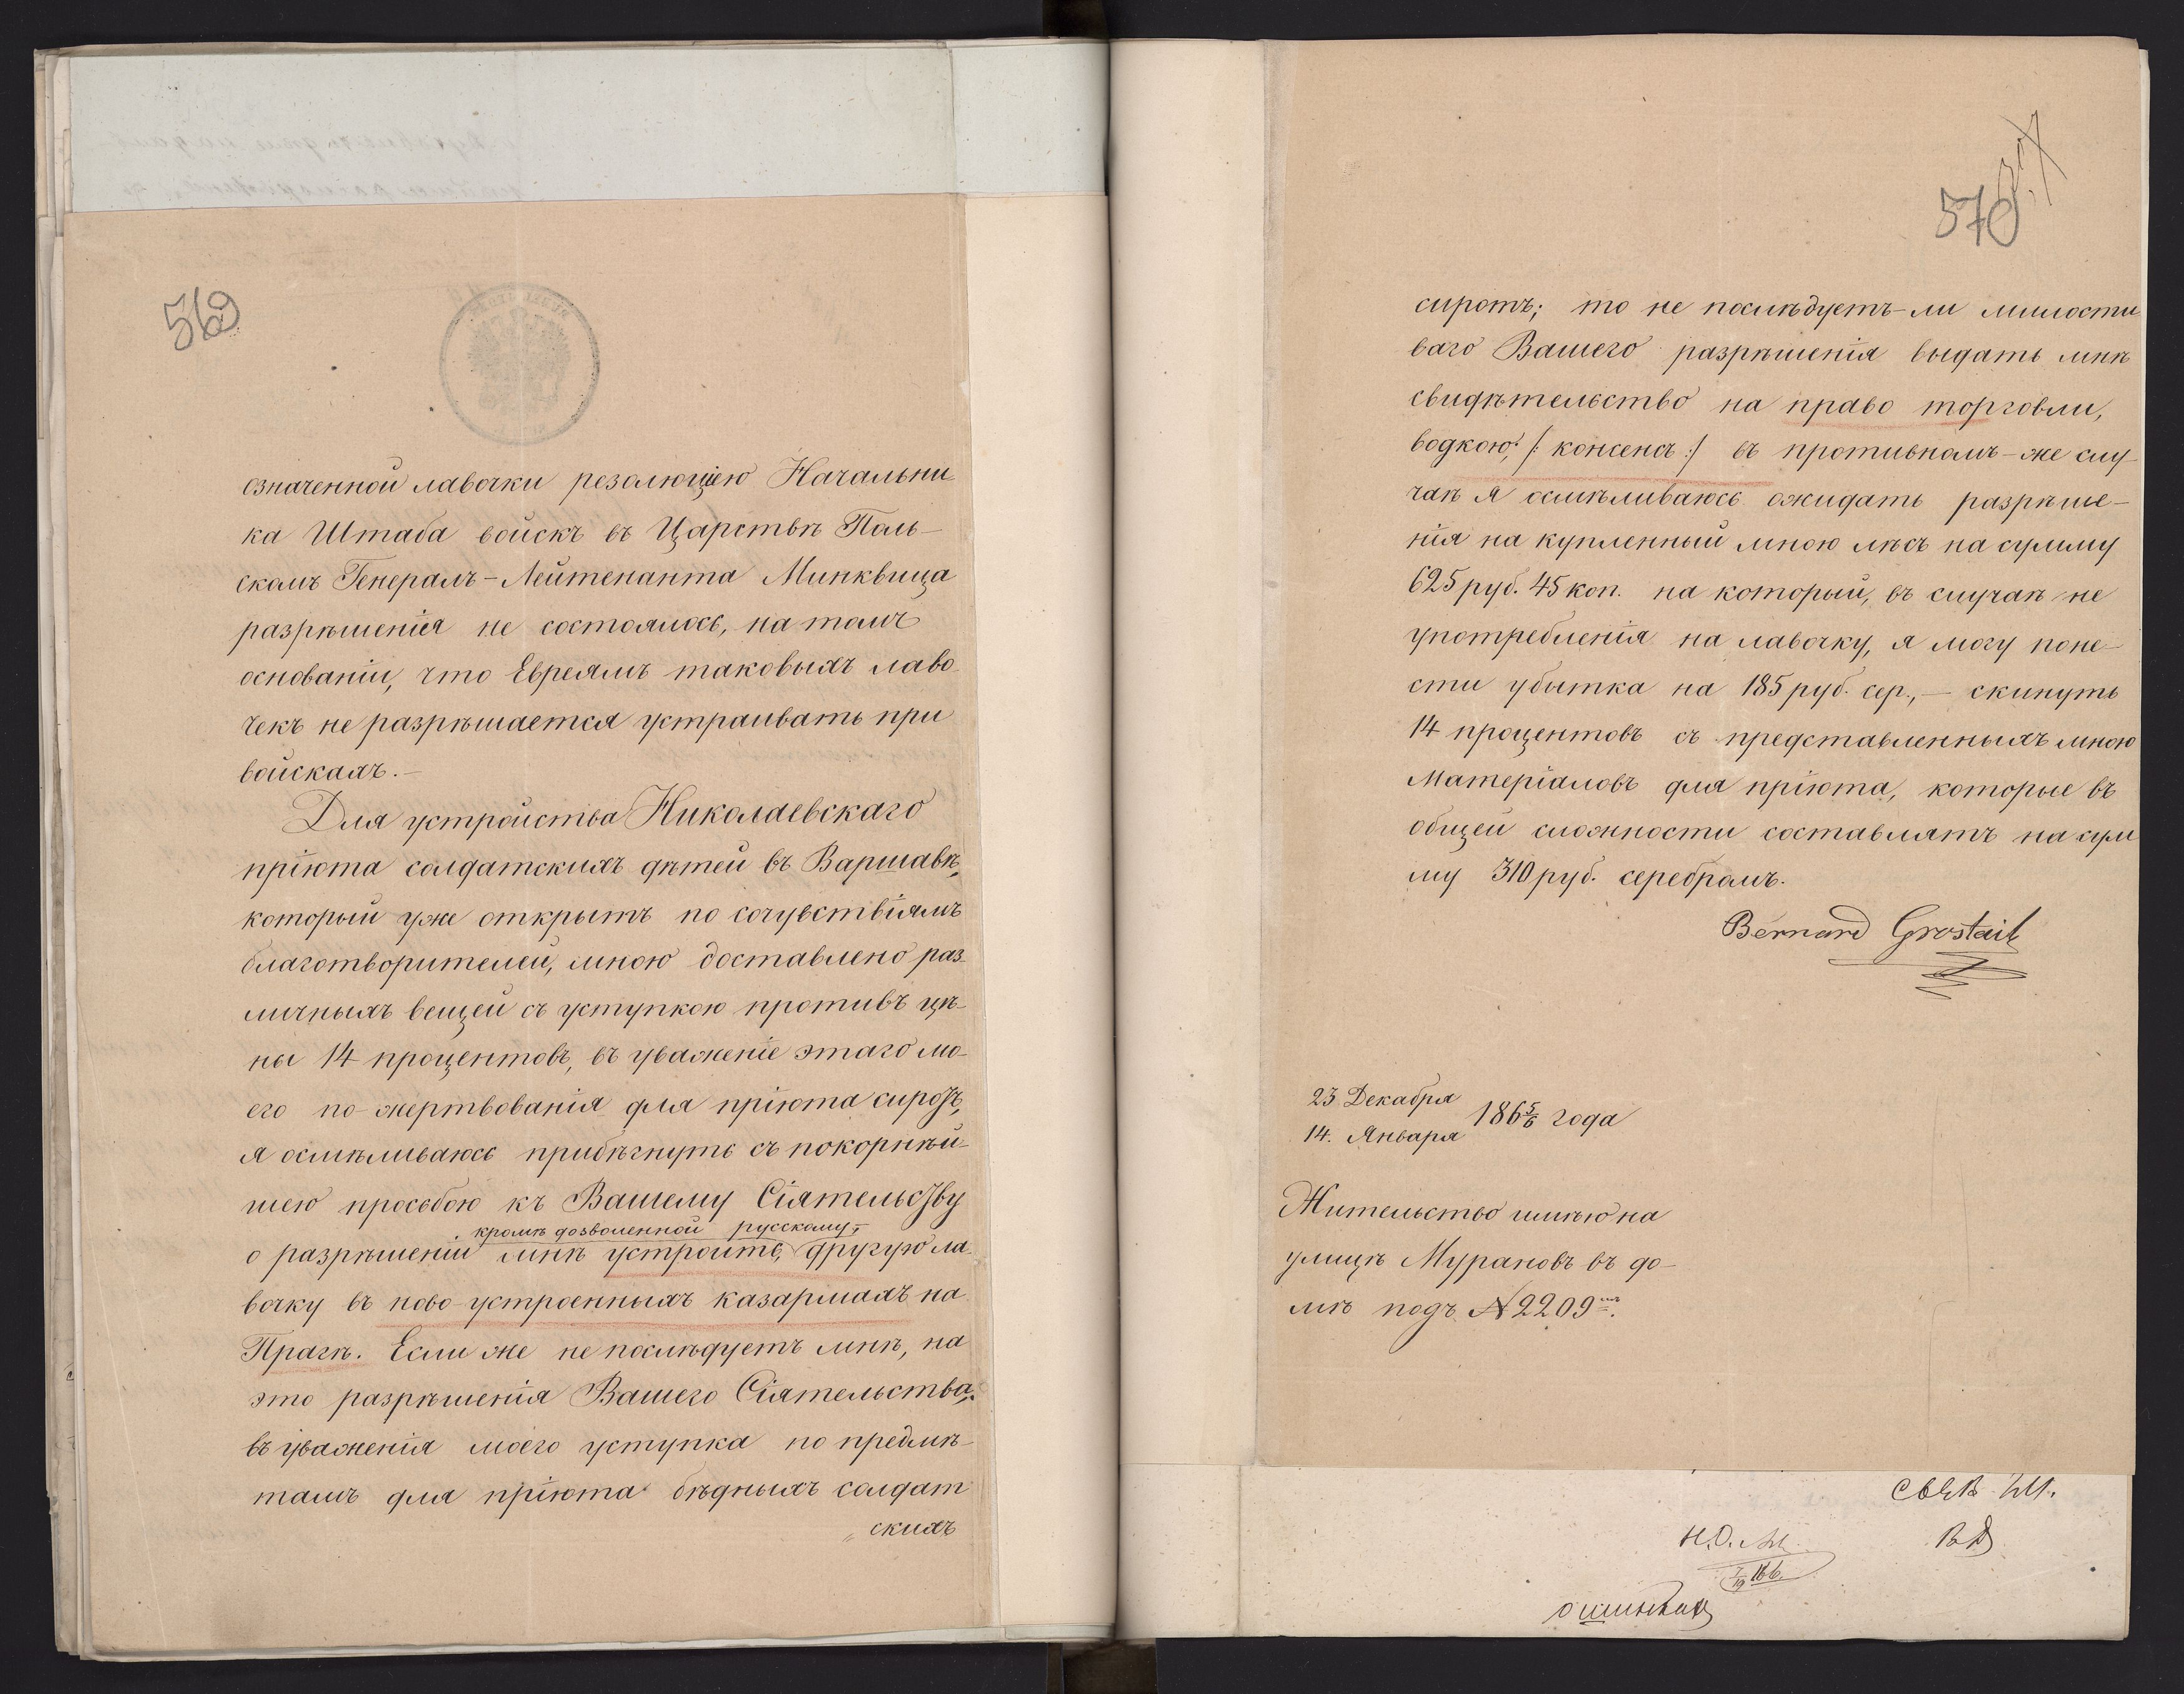 569
означенной лавочки резолюціею Начальни
ка Штаба войскъ въ Царствѣ Поль-
скомъ Генералъ-Лейтенанта Минквица
разрѣшенія не состоялось, на томъ
основаніи, что Евреямъ таковыхъ лаво
чекъ не разрѣшается устраивать при
войскахъ.-
Для устройства Николаевскаго
пріюта солдатскихъ дѣтей въ Варшавѣ,
который уже открытъ по сочувствіямъ
благотворителей, мною доставлено раз-
личныхъ вещей съ уступкою противъ цѣ-
ны 14 процентовъ, въ уваженіе этаго мо-
его по-жертвованія для пріюта сиротъ,
я осмѣливаюсь прибѣгнуть съ покорнѣй-
шею просьбою къ Вашему Сіятельству
кромѣ дозволенной русскому,
о разрѣшеніи мнѣ устроить, другую ла-
вочку въ ново-устроенныхъ казармахъ на
Прагѣ. Если же не послѣдуетъ мнѣ, на
это разрѣшенія Вашего Сіятельства,
въ уваженія моего уступка по предмѣ-
тамъ для пріюта бѣдныхъ солдат
„скихъ
570
сиротъ; то не послѣдуетъ-ли милости
ваго Вашего разрѣшенія выдать мнѣ
свидѣтельство на право торговли,
водкою, /: консенсъ :/ въ противномъ-же слу-
чаѣ я осмѣливаюсь ожидать разрѣше-
нія на купленный мною лѣсъ на сумму
625 руб. 45 коп. на который, въ случаѣ не
употребленія на лавочку, я могу поне-
сти убытка на 185 руб. сер.,- скинуть
14 процентовъ съ представленныхъ мною
матеріаловъ для пріюта, которые въ
общей сложности составлятъ на сум
му 310 руб. серебромъ.
Bernard Grostait
23 Декабря
14. Января 186 5/6 года
Жительство имѣю на
улицѣ Мурановъ въ до-
мѣ подъ № 2209мъ.
Н.О.